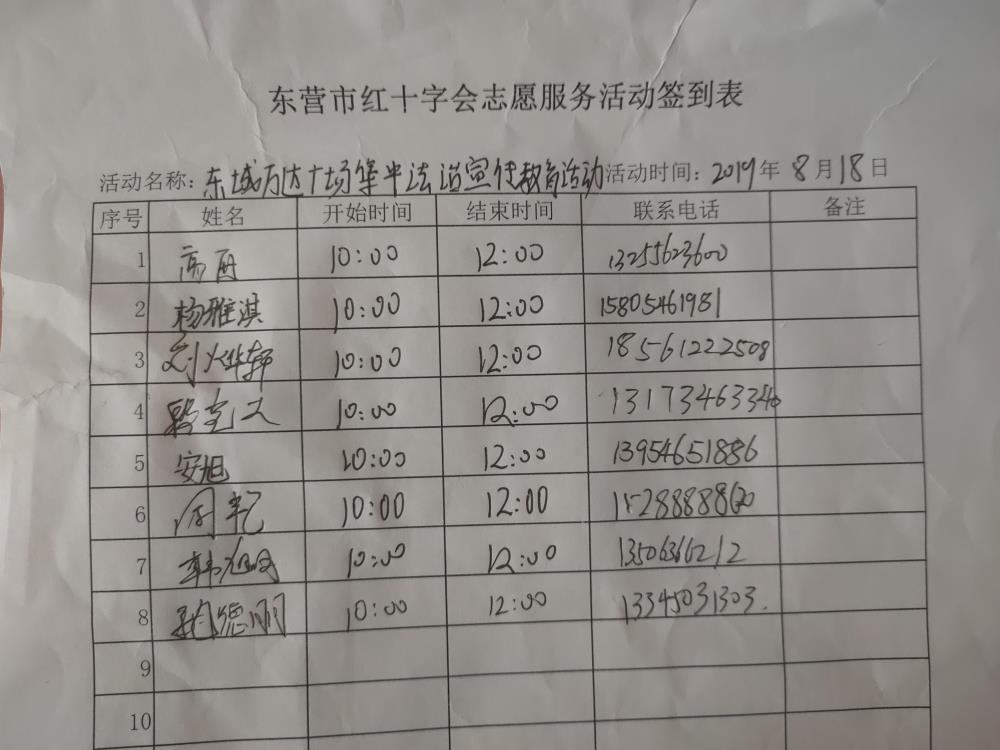 东营市红十字会志愿服务活动签到表
活动名称：东城万达广场集中法谊宣传教育活动 活动时间：2019年8月18日
序号 姓名 开始时间 结束时间 联系电话 备注
1 高丹 10:00 12:00 13255623600
2 杨雅淇 10:00 12:00 15805461981
3 刘烨轩 10:00 12:00 18561222508
4 10:00 12:00 13173463340
5 安旭 10:00 12:00 13954651886
6 周 10:00 12:00
7 韩旭 10:00 12:00 13506366212
8 德刚 10:00 12:00 13345031303
9
10